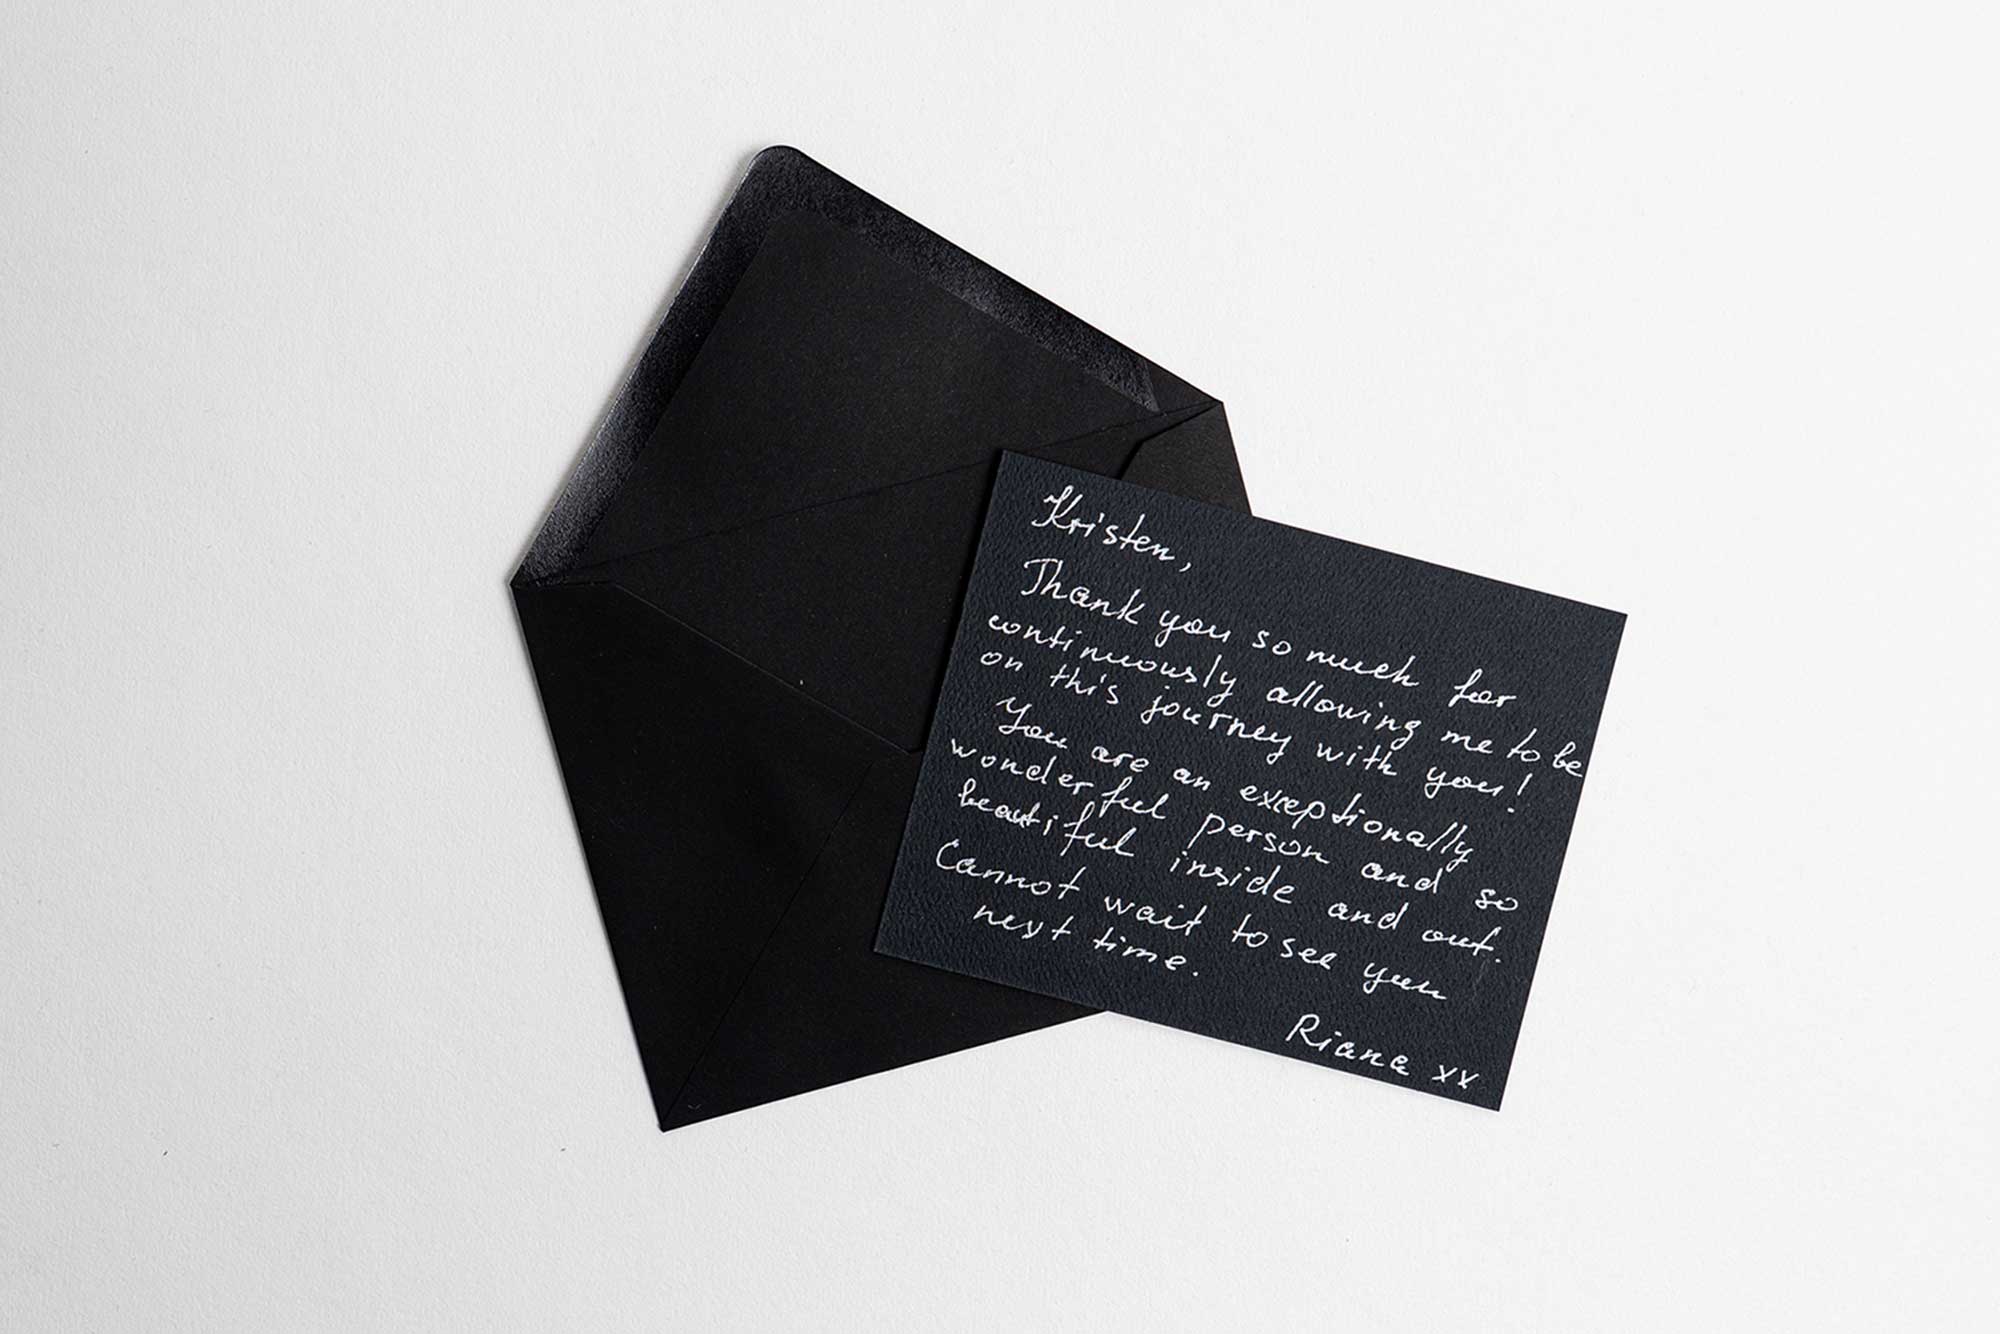 Kristen,
Thank you so much for
continuously allowing me to be
on this journey with you!
You are an exceptionally
wonderful person and so
beautiful inside and out.
Cannot wait to see you
next time.
Riana xx